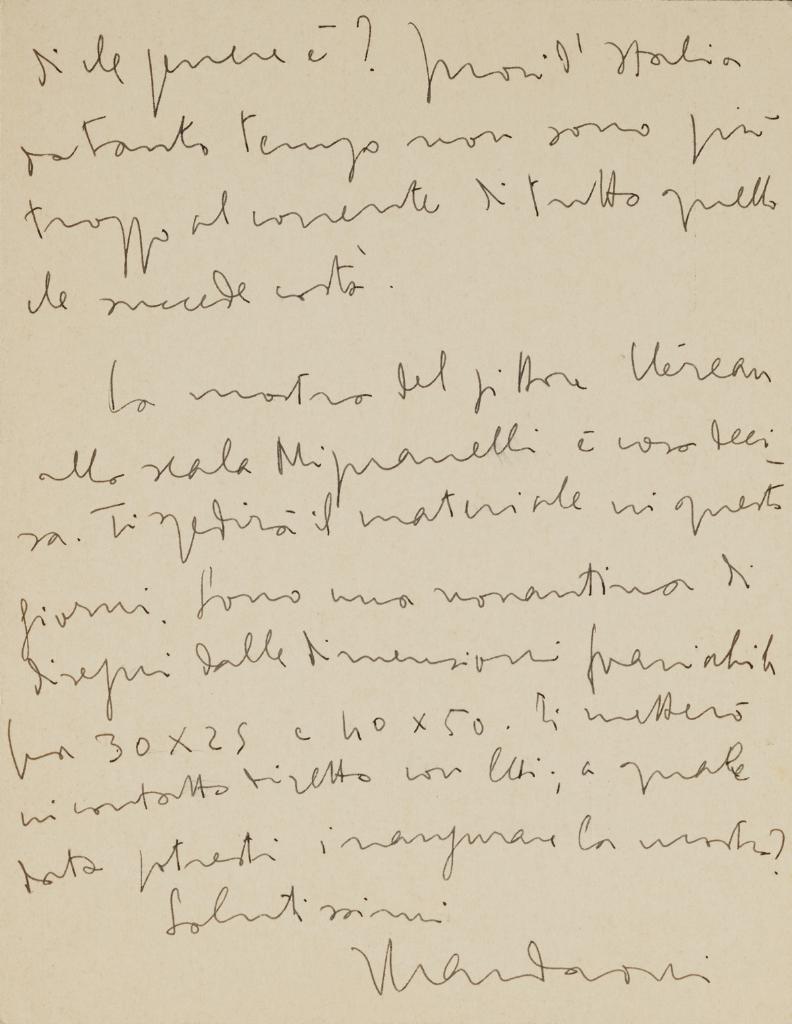 di che genere è? Fuori d'Italia
da tanto tempo non sono più
troppo al corrente di tutto quello
che succede costà.
La mostra del pittore Véreau
alla scala Mignanelli è cosa deci-
sa. Ti spedirà il materiale in questi
giorni. Sono una novantina di
disegni dalle dimensioni variabili
fra 30 x 25 e 40 x 50. Ti metterò
in contatto diretto con lui; a quale
data potresti inaugurare la mostra?
Salutissimi